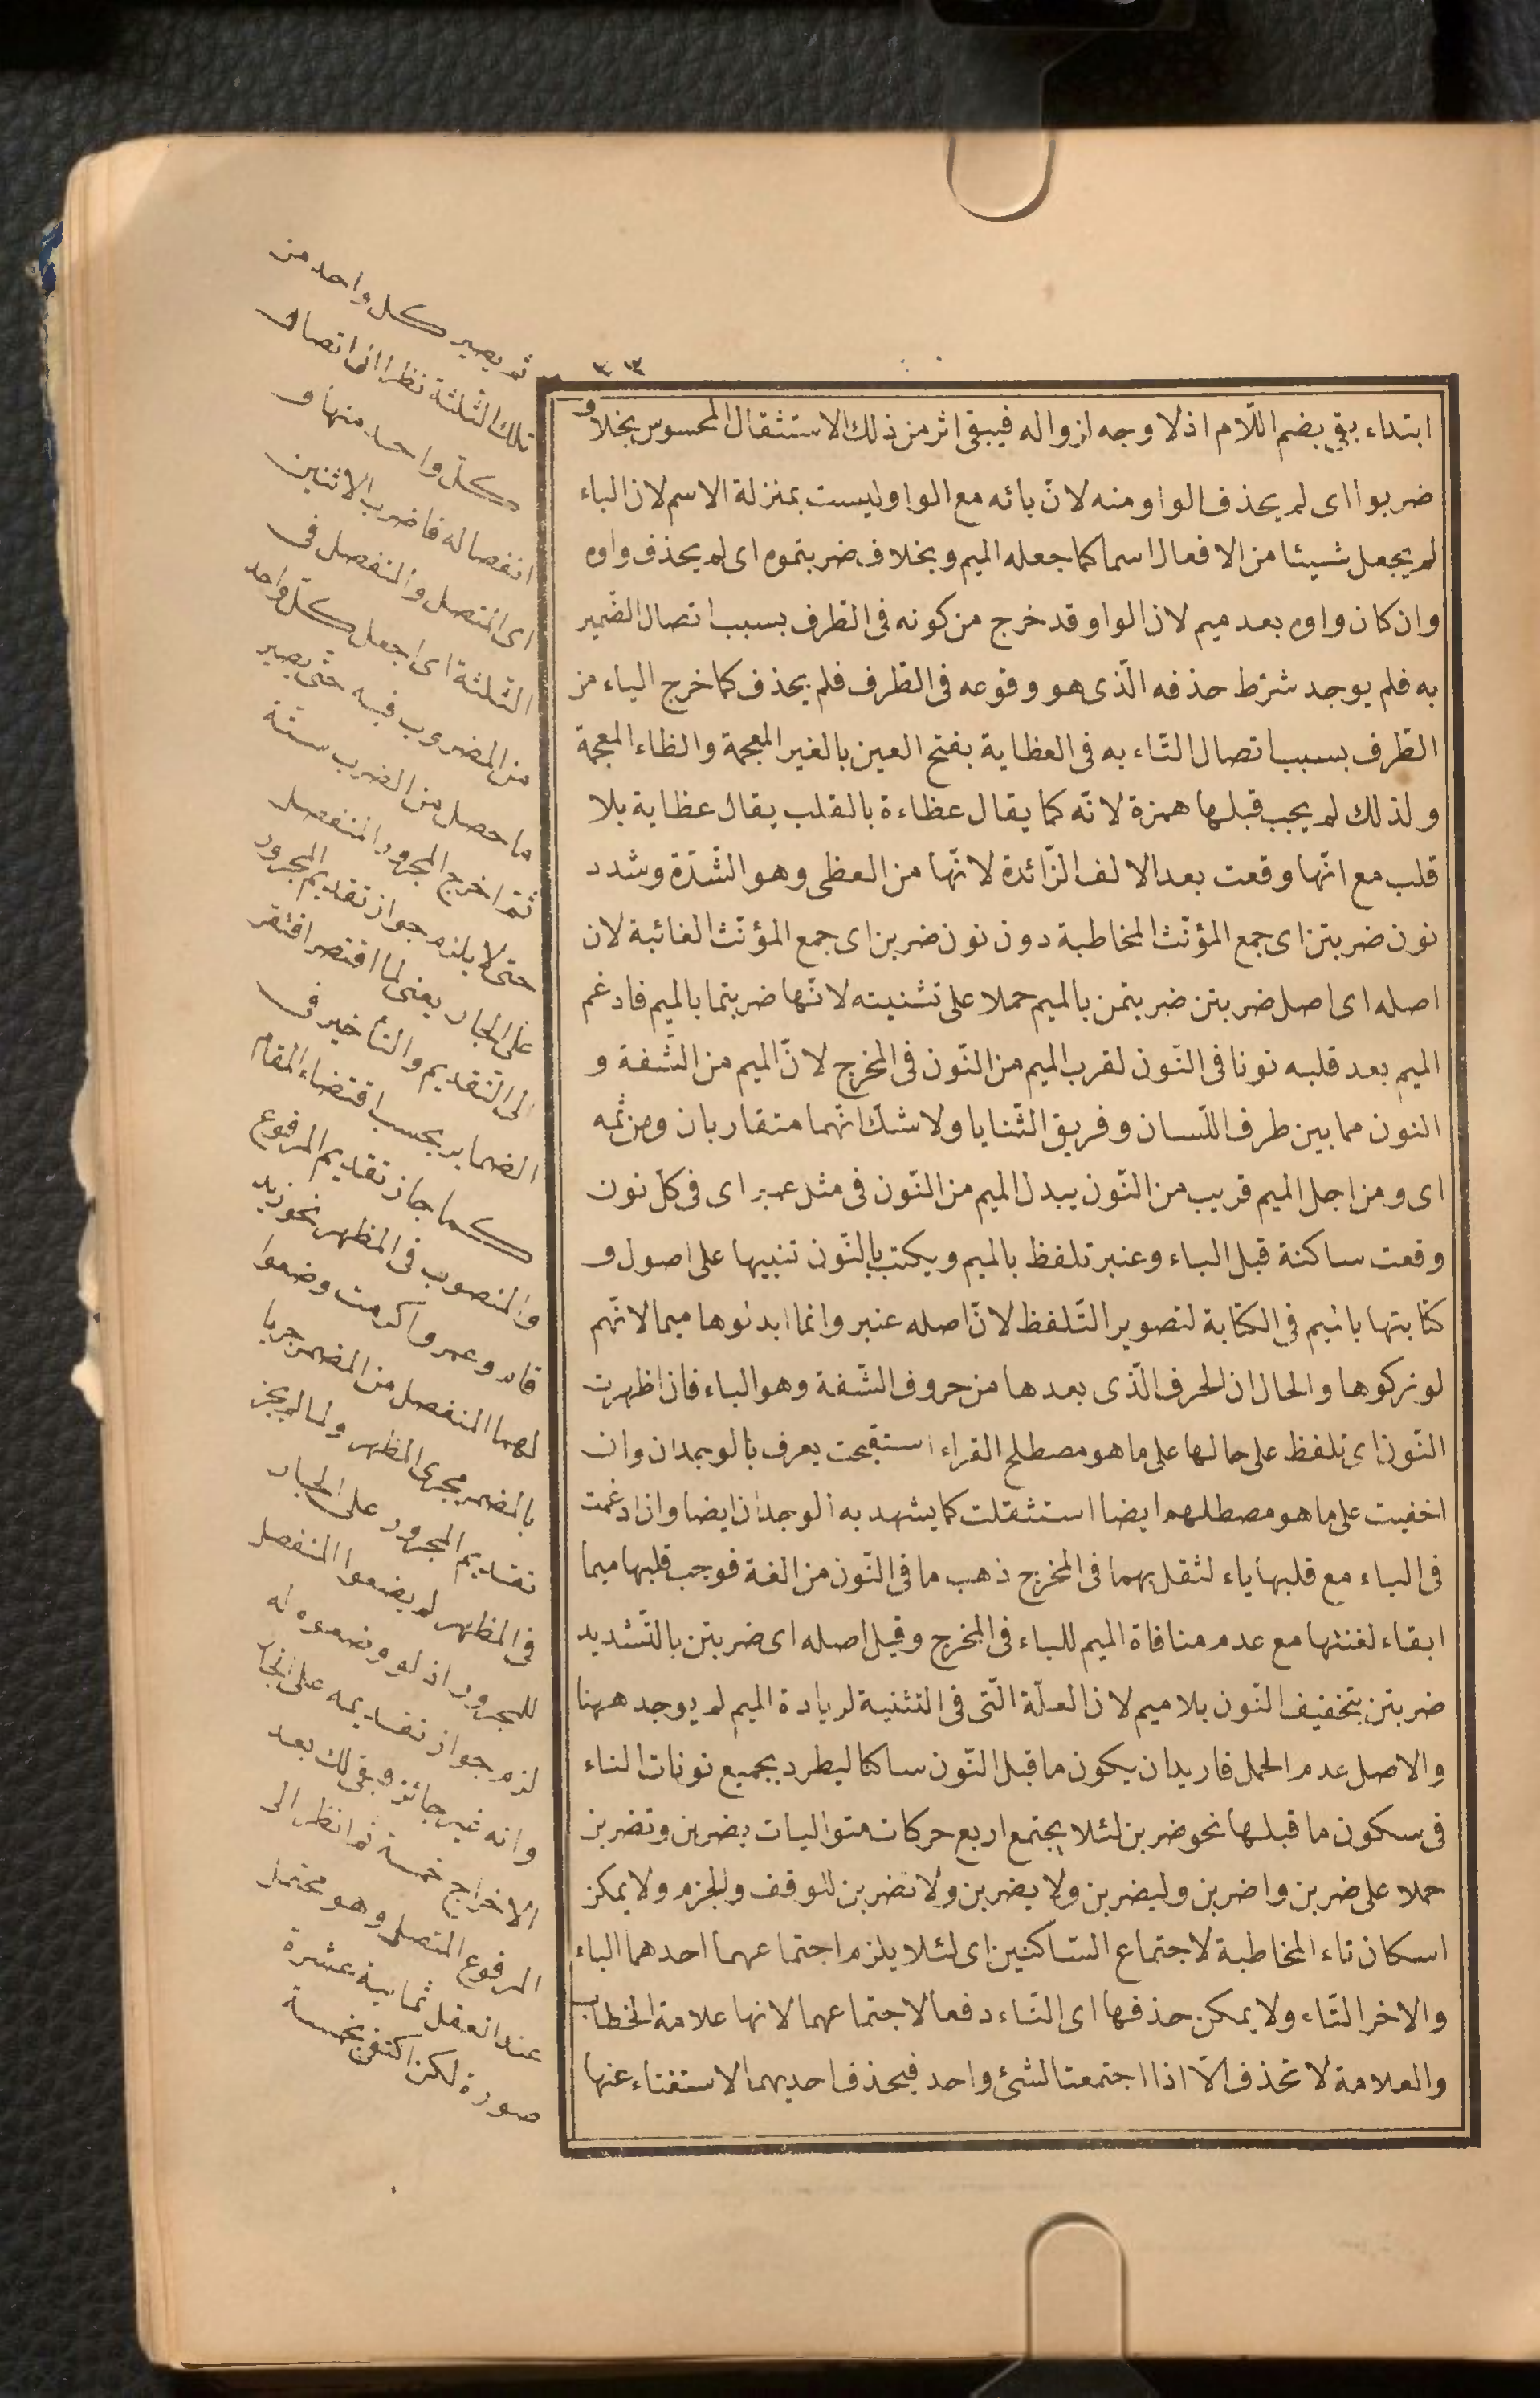 ٣٣
ابتداء بقى بضم اللّام اذ لا وجه لزواله فيبقى اثر من ذلك الاستثقال المحسوس بخلاف
ضربوا اى لم يحذف الواو منه لانّ بائه مع الواو ليست بمنزلة الاسم لان الباء
لم يجعل شيئا من الافعال اسما كما جعله الميم وبخلاف ضربتموه اى لم يحذف واوه
وان كان واوه بعد ميم لان الواو قد خرج من كونه فى الطّرف بسبب اتصال الضّمير
به فلم يوجد شرط حذفه الّذى هو وقوعه فى الطّرف فلم يحذف كما خرج الياء من
الطّرف بسبب اتصال التّاء به فى العظاية بفتح العين بالغير المعجمة والظاء المعجمة
ولذلك لم يجب قبلها همزة لانّه كما يقال عظاءة بالقلب يقال عظاية بلا
قلب مع انّها وقعت بعد الالف الزّائدة لانّها من العظى وهو الشّدّة وشدد
نون ضربتن اى جمع المؤنّث المخاطبة دون نون ضربن اى جمع المؤنّث الغائبة لان
اصله اى اصل ضربتن ضربتمن بالميم حملا على تثنيته لانّها ضربتما بالميم فادغم
الميم بعد قلبه نونا فى النّون لقرب الميم من النّون فى المخرج لانّ الميم من الشّفة و
النون مما بين طرف اللّسان وفريق الثّنايا ولا شكّ انّهما متقاربان ومن ثمه
اى ومن اجل الميم قريب من النّون يبدل الميم من النّون فى مثل عمبر اى فى كل نون
وقعت ساكنة قبل الباء وعنبر تلفظ بالميم ويكتب بالنّون تنبيها على اصول و
كتابتها بالميم فى الكتابة لتصوير التّلفظ لانّ اصله عنبر وانما ابدلوها ميما لانّهم
لو تركوها والحال ان الحرف الّذى بعدها من حروف الشّفة وهو الباء فان اظهرت
النّون اى تلفظ على حالها على ما هو مصطلح القراء استقبحت يعرف بالوجدان وان
اخفيت على ما هو مصطلهم ايضا استثقلت كما يشهد به الوجدان ايضا وان ادغمت
فى الباء مع قلبها باء لثقل بهما فى المخرج ذهب ما فى النّون من الغنة فوجب قلبها ميما
ابقاء لغنتها مع عدم منافاة الميم للباء فى المخرج وقيل اصله اى ضربتن بالتّشديد
ضربتن بتخفيف النّون بلا ميم لان العلّة الّتى فى التثنية لزيادة الميم لم يوجد ههنا
والاصل عدم الحمل فاريد ان يكون ما قبل النّون ساكنا ليطرد بجميع نونات النساء
فى سكون ما قبلها نحو ضربن لئلا يجتمع اربع حركات متواليات يضربن وتضربن
حملا على ضربن واضربن وليضربن ولا يضربن ولا تضربن للوقف والجزم ولا يمكن
اسكان تاء المخاطبة لاجتماع السّاكنين اى لئلا يلزم اجتماعهما احدهما الباء
والاخر التّاء ولا يمكن حذفها اى التّاء دفعا لاجتماعهما لانها علامة الخطاب
والعلامة لا تحذف الّا اذا اجتمعتا لشئ واحد فيحذف احديهما لاستغناء عنها
ثم يصير كل واحد من
تلك الثّلثة نظرا الى اتصال
كل واحد منها و
انفصاله فاضرب الاثنين
اى المتصل والمنفصل فى
الثّلثة اى اجعل كل واحد
من المضروب فيه حتّى يصير
ما حصل من الضرب ستّة
ثمّ اخرج المجرور المنفصل
حتى لا يلزم جواز تقديم المجرور
على الجار يعنى لما اقتصر افتقر
الى التّقديم والتأخير فى
الضماير بحسب اقتضاء المقام
كما جاز تقديم المرفوع
والمنصوب فى المظهر نحو زيد
قام وعمروا اكرمت وضعوا
لهما المنفصل من المضمر جريا
بالمضمر مجرى المظهر ولما لم يجز
تقديم المجرور على الجار
فى المظهر لم يضعوا المنفصل
للمجرور اذ لو وضعوه له
لزم جواز تقديمه على الجار
وانه غير جائز وبقى لك بعد
الاخراج خمسة ثم انظر الى
المرفوع المتصل وهو محتمل
عند العقل ثمانية عشرة
صورة لكن اكتفى بخمسة